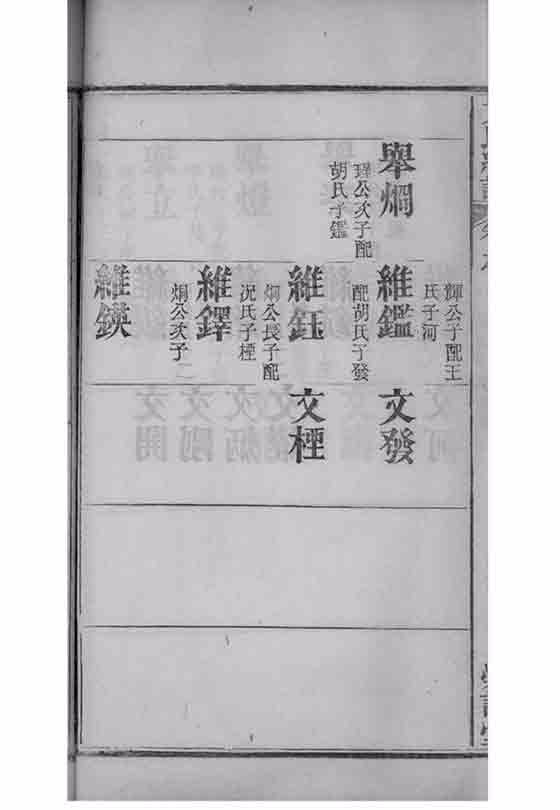 舉烱
公次子配
胡氏子鑑
輝公子配王
氏子河
維鑑
配胡氏子發
維鈺
烱公長子配
況氏子桱
維鐸
烱公次子二
維鍈
文發
文桱